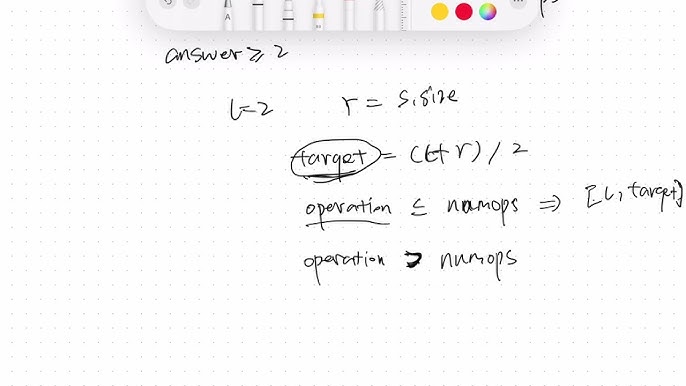 answer ≥ 2
l=2 r = s.size
target = (l+r) / 2
operation ≤ numops ⇒ [l, target]
operation > numops